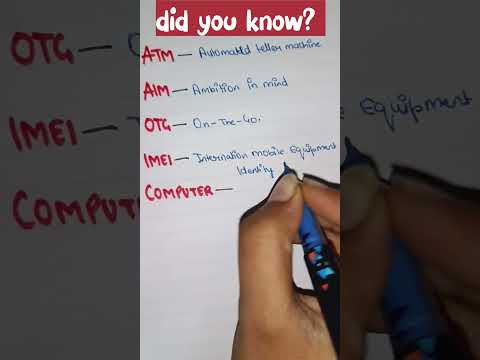 did you know?
ATM — Automated teller machine
AIM — Ambition in mind
OTG — On-The-Go.
IMEI — Internation mobile Equipment
Identity
COMPUTER —
OTG — O
IMEI —
COMPUT
Equipment